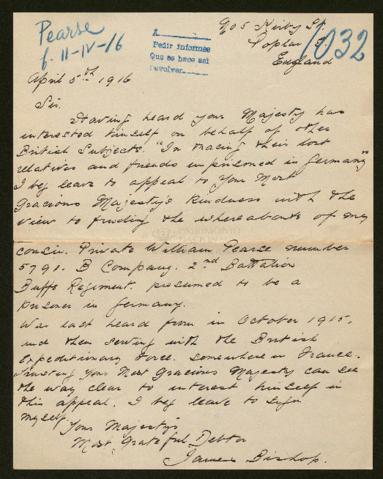 Pearse
f. 11-IV-16
A
Pedir informes
Que se hace así
devolver
1032
905 Kirby St
Poplar E
England
April 5th 1916
Sir.
Having heard your Majesty has
interested himself on behalf of other
British Subjects. "In tracing their lost
relatives and friends imprisoned in Germany"
I beg leave to appeal to Your Most
Gracious Majesty's Kindness with the
view to finding the whereabouts of my
cousin. Private William Pearse number
5791. B Company. 2nd Battalion
Buffs Regiment. presumed to be a
prisoner in Germany.
Was last heard from in October 1915,
and then serving with the British
Expeditionary Force. somewhere in France.
Trusting Your Most Gracious Majesty can see
the way clear to interest himself in
this appeal. I beg leave to sign
myself.
Your Majesty's
Most Grateful Debtor
James Bishop.